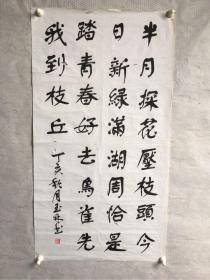 半月探花壓枝頭今
日新綠滿湖周恰是
踏青春好去鳥雀先
我到枝丘
丁亥秋月玉林書